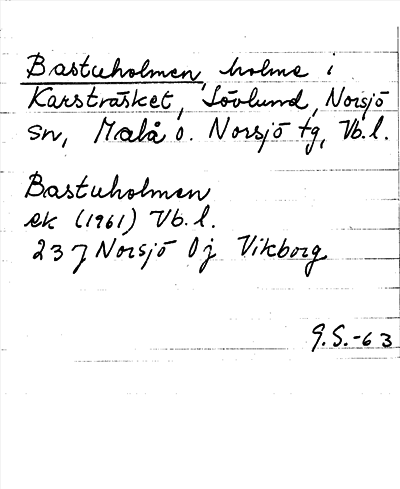 Bastuholmen, holme i
Karsträsket, Lövlund, Norsjö
sn, Malå o. Norsjö tg, Vb. l.
Bastuholmen
ek (1961) Vb. l.
23 J Norsjö 0j Vikborg
G.S.-63